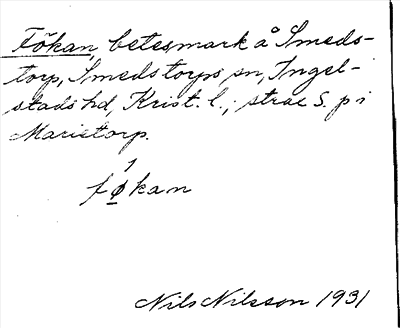 Fökan, betesmark å Smeds-
torp, Smedstorps sn, Ingel-
stads hd, Krist. l., strax S. p i
Marietorp.
fǿ̠kan
Nils Nilsson 1931